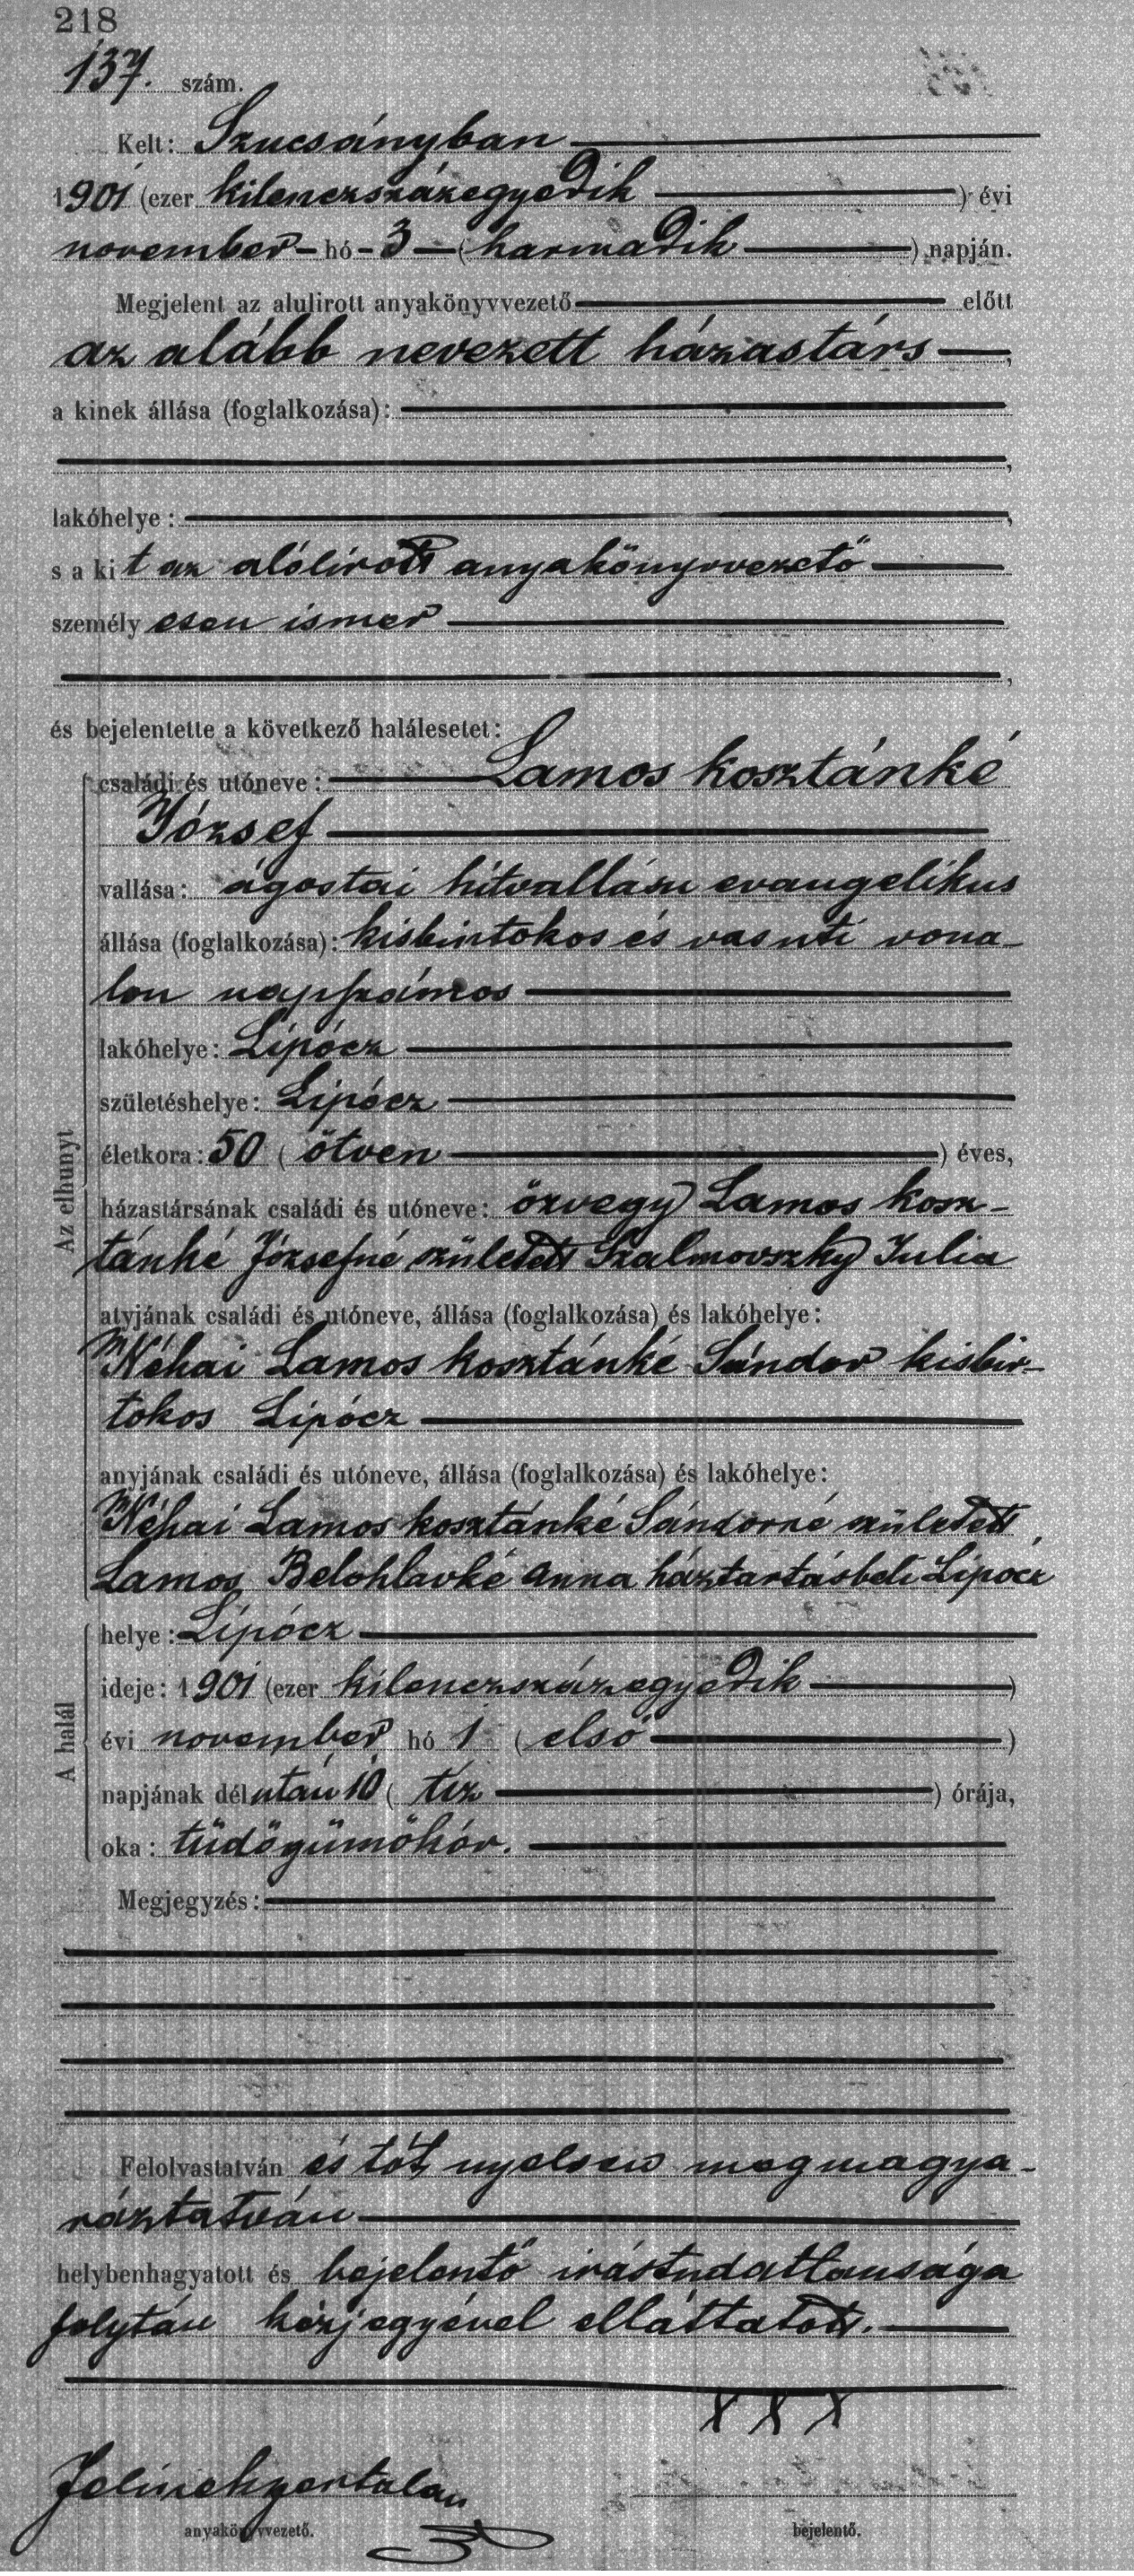 218
137. szám.
Kelt: Szucsányban
1901 (ezer kilenczszázegyedik) évi
november hó 3 (harmadik) napján.
Megjelent az alulirott anyakönyvvezető előtt
az alább nevezett házastárs,
a kinek állása (foglalkozása):
,
lakóhelye:,
s a kit az alólirott anyakönyvvezető
személyesen ismer
,
és bejelentette a következő halálesetet:
családi és utóneve: Lamos kosztánké
József
vallása: ágostai hitvallásu evangelikus
állása (foglalkozása): kisbirtokos és vasuti vona-
lon napszámos
lakóhelye: Lipócz
születéshelye: Lipócz
Az elhunyt
életkora: 50 (ötven) éves,
házastársának családi és utóneve: özvegy Lamos kosz-
tánké Józsefné született Szalmovszky Julia
atyjának családi és utóneve, állása (foglalkozása) és lakóhelye:
Néhai Lamos kosztánké Sándor kisbir-
tokos Lipócz
anyjának családi és utóneve, állása (foglalkozása) és lakóhelye:
Néhai Lamos kosztánké Sándorné született
Lamos Belohlavké Anna háztartásbeli Lipócz
helye: Lipócz
ideje: 1901 (ezer kilenczszázegyedik)
A halál
évi november hó 1 (első)
napjának délután 10 (tíz) órája,
oka: tüdőgümőkór.
Megjegyzés:
Felolvastatván és tót nyelven megmagya-
ráztatván
helybenhagyatott és bejelentő irástudatlansága
folytán kézjegyével elláttatott.
X X X
anyakönyvvezető.
bejelentő.